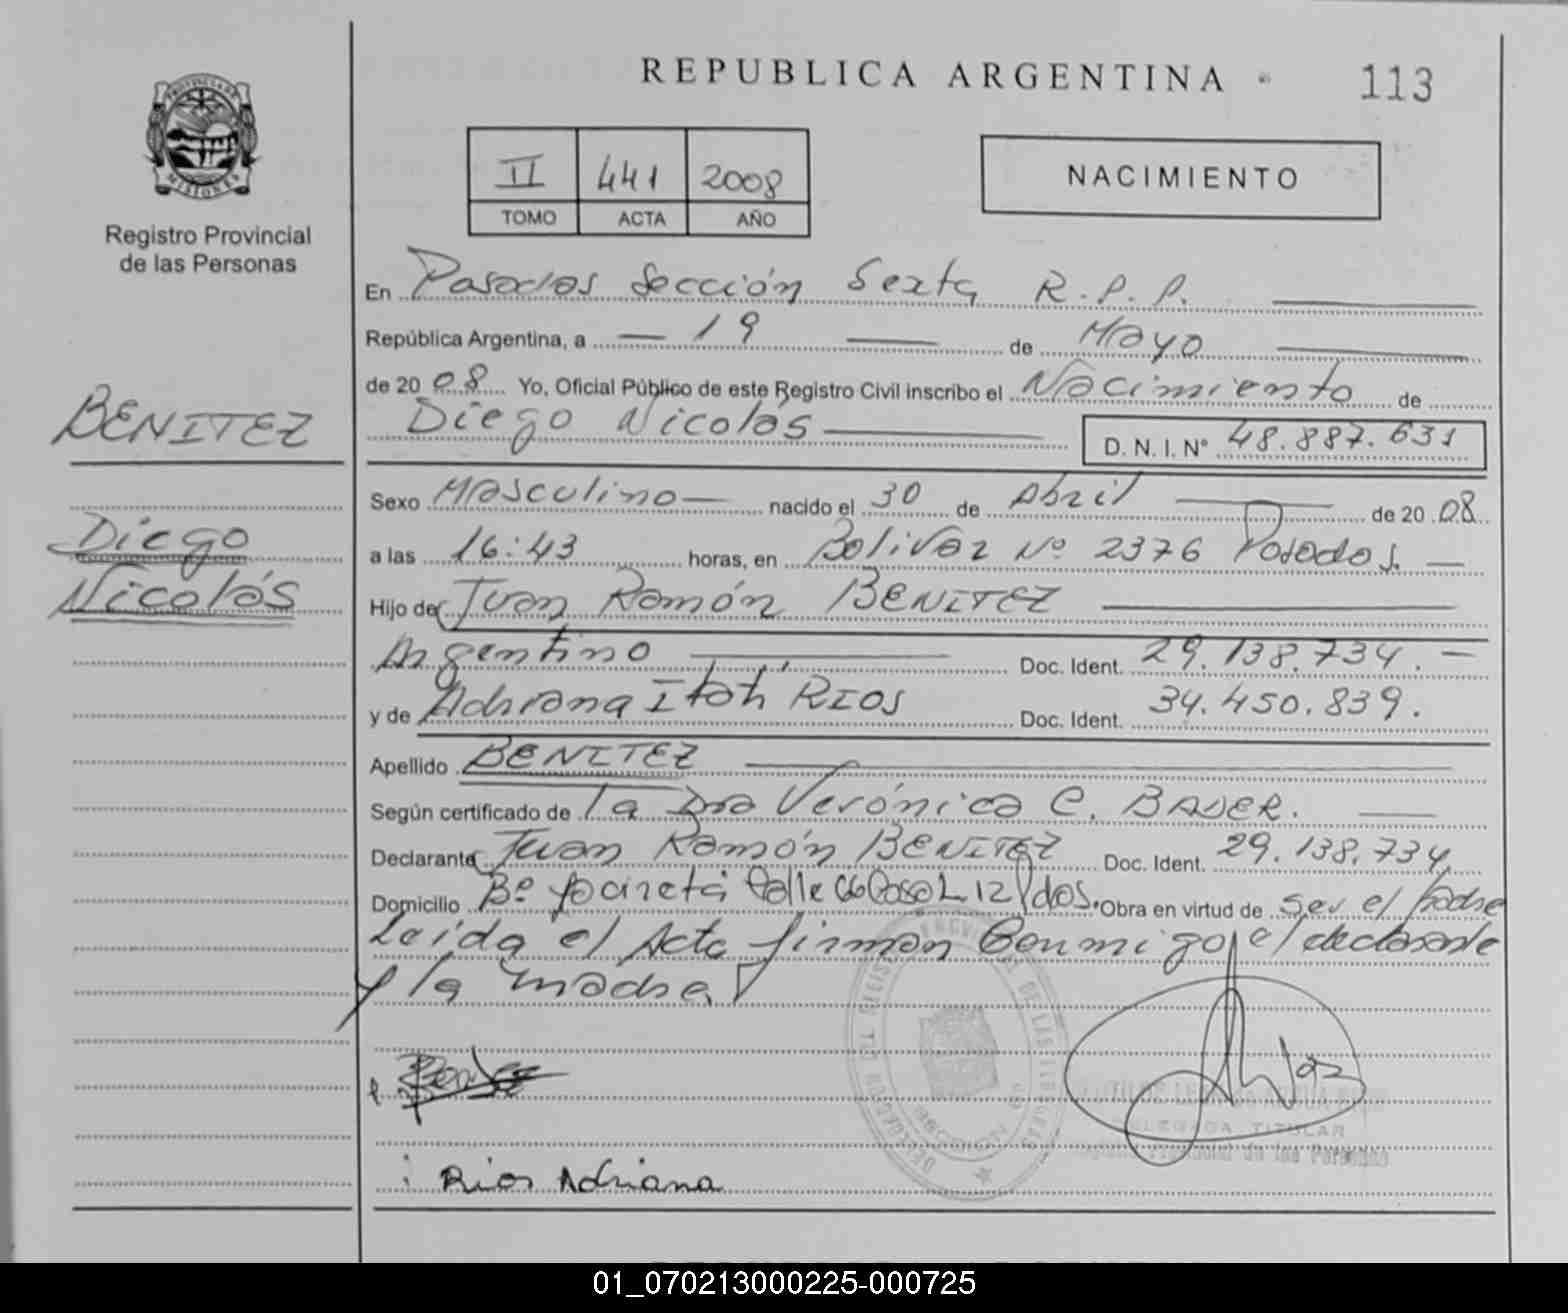 REPUBLICA ARGENTINA 113
PROVINCIA DE MISIONES
Registro Provincial
de las Personas
II 441 2008
TOMO ACTA AÑO
NACIMIENTO
En Posadas Sección Sexta R.P.P.
República Argentina, a 19 de Mayo
de 2008 Yo, Oficial Público de este Registro Civil inscribo el Nacimiento de
Diego Nicolás D. N. I. N° 48.887.631
BENITEZ
Diego
Nicolás
Sexo Masculino nacido el 30 de Abril de 2008
a las 16:43 horas, en Bolivar Nº 2376 Posadas.
Hijo de Juan Ramón BENITEZ
Argentino Doc. Ident. 29.138.734.
y de Adriana RIOS Doc. Ident. 34.450.839.
Apellido BENITEZ
Según certificado de la Dra Verónica C. BAUER.
Declarante Juan Ramón BENITEZ Doc. Ident. 29.138.734
Domicilio Bº Yacireta Calle Casa Pdas. Obra en virtud de ser el padre
Leída el Acta firman Conmigo el declarante
y la madre
Rios Adriana
DELEGADA TITULAR
Registro Provincial de las Personas
01_070213000225-000725